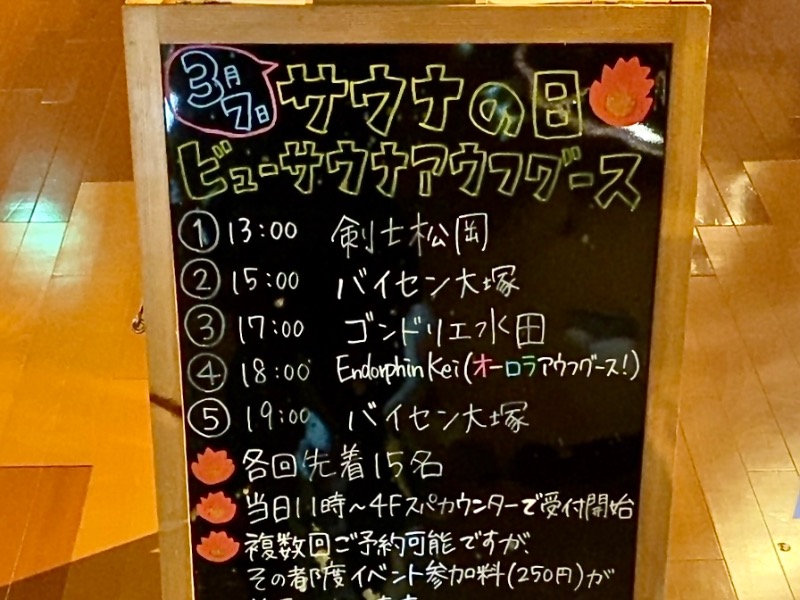 3月7日 サウナの日
ビューサウナアウフグース
① 13:00 剣士松岡
② 15:00 バイセン大塚
③ 17:00 ゴンドリエ水田
④ 18:00 Endorphin Kei (オーロラアウフグース!)
⑤ 19:00 バイセン大塚
各回先着15名
当日11時～4Fスパカウンターで受付開始
複数回ご予約可能ですが、
その都度イベント参加料(250円)が